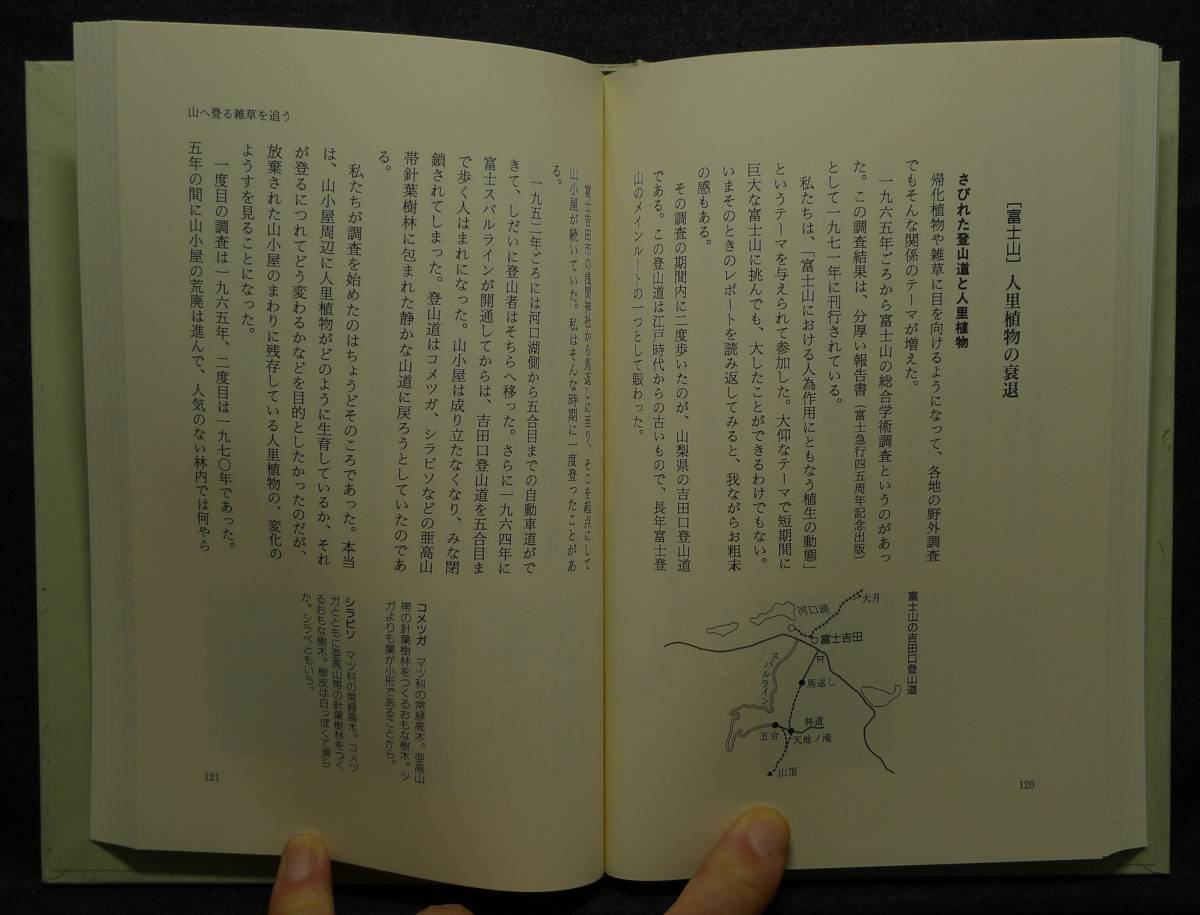 ［富士山］人里植物の衰退
さびれた登山道と人里植物
帰化植物や雑草に目を向けるようになって、各地の野外調査
でもそんな関係のテーマが増えた。
一九六五年ごろから富士山の総合学術調査というのがあっ
た。この調査結果は、分厚い報告書（富士急行四五周年記念出版）
として一九七一年に刊行されている。
私たちは、「富士山における人為作用にともなう植生の動態」
というテーマを与えられて参加した。大仰なテーマで短期間に
巨大な富士山に挑んでも、大したことができるわけでもない。
いまそのときのレポートを読み返してみると、我ながらお粗末
の感もある。
その調査の期間内に二度歩いたのが、山梨県の吉田口登山道
である。この登山道は江戸時代からの古いもので、長年富士登
山のメインルートの一つとして賑わった。
富士山の吉田口登山道
大月
河口湖
富士吉田
スバルライン
馬返し
林道
五合
天地ノ滝
▲山頂
120
山へ登る雑草を追う
富士吉田市の浅間神社から馬返しに至り、そこを起点にして
山小屋が続いていた。私はそんな時期に一度登ったことがあ
る。
一九五二年ごろには河口湖側から五合目までの自動車道がで
きて、しだいに登山者はそちらへ移った。さらに一九六四年に
富士スバルラインが開通してからは、吉田口登山道を五合目ま
で歩く人はまれになった。山小屋は成り立たなくなり、みな閉
鎖されてしまった。登山道はコメツガ、シラビソなどの亜高山
帯針葉樹林に包まれた静かな山道に戻ろうとしていたのであ
る。
私たちが調査を始めたのはちょうどそのころであった。本当
は、山小屋周辺に人里植物がどのように生育しているか、それ
が登るにつれてどう変わるかなどを目的としたかったのだが、
放棄された山小屋のまわりに残存している人里植物の、変化の
ようすを見ることになった。
一度目の調査は一九六五年、二度目は一九七〇年であった。
五年の間に山小屋の荒廃は進んで、人気のない林内では何やら
コメツガ　マツ科の常緑高木。亜高山
帯の針葉樹林をつくるおもな樹木。ツ
ガよりも葉が小形であることから。
シラビソ　マツ科の常緑高木。コメツ
ガとともに亜高山帯の針葉樹林をつく
るおもな樹木。樹皮は白っぽくて滑ら
か。シラベともいう。
121